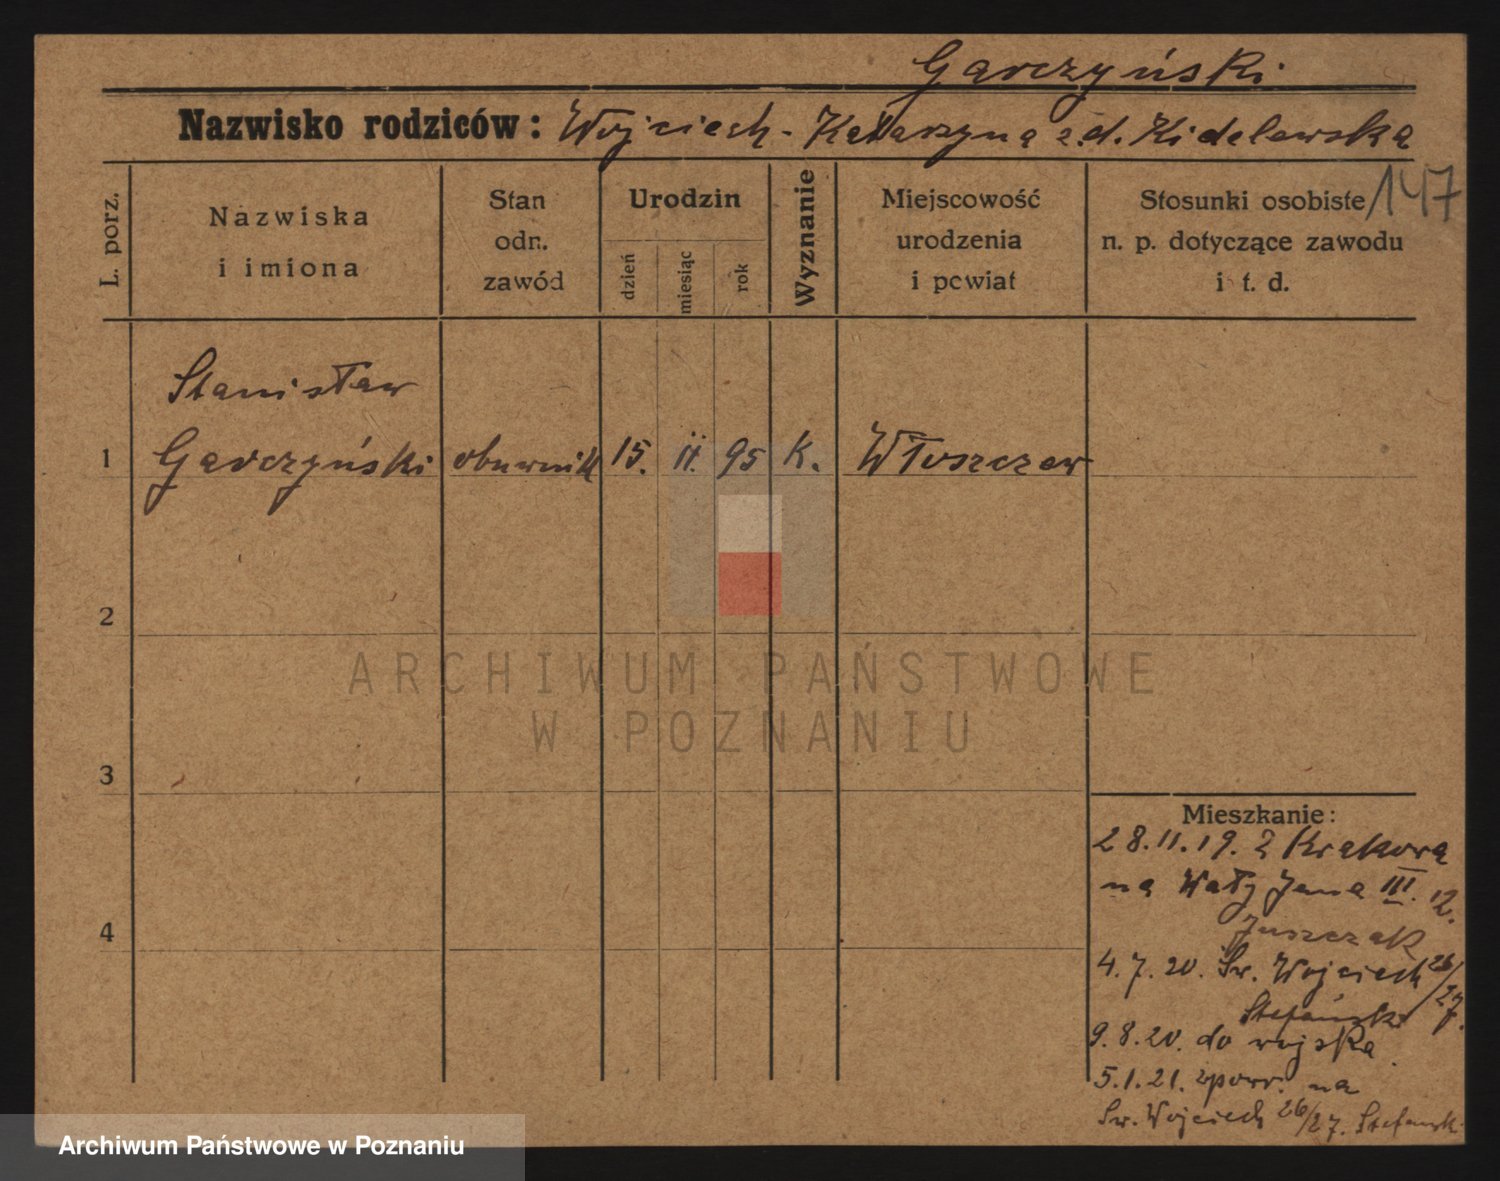 Garczyński
Nazwisko rodziców: Wojciech - Katarzyna z.d. Kidelewska
147
L. porz.
Nazwiska
i imiona
Stan
odn.
zawód
Urodzin
dzień
miesiąc
rok
Wyznanie
Miejscowość
urodzenia
i powiat
Stosunki osobiste
n. p. dotyczące zawodu
i t. d.
Stanisław
1 Garczyński obuwnik 15. II. 95 K. Włoszczow
2
3
4
ARCHIWUM PAŃSTWOWE
W POZNANIU
Mieszkanie:
28.11.19. z Krakowa
na Wały Jana III. 12.
Juszczak
4.7.20. Św. Wojciech 26/27.
Stefański
9.8.20. do wojska
5.1.21. zpowr. na
Św. Wojciech 26/27. Stefański
Archiwum Państwowe w Poznaniu